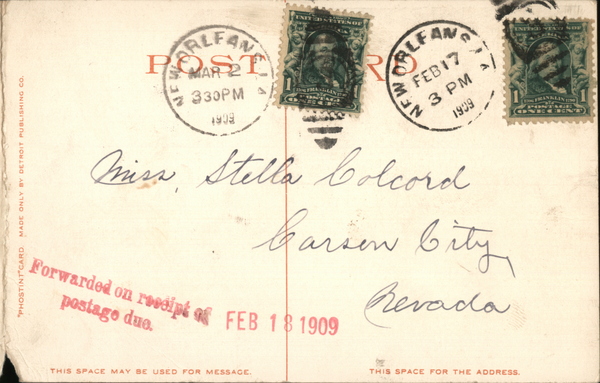 POST CARD
NEW ORLEANS, LA
MAR 2
330PM
1909
NEW ORLEANS, LA
FEB 17
3 PM
1909
UNITED STATES OF AMERICA
FRANKLIN
POSTAGE
ONE CENT
1 FRANKLIN 1
POSTAGE
ONE CENT
Miss, Stella Colcord
Carson City,
Nevada
Forwarded on receipt of
postage due.
FEB 18 1909
"PHOSTINT" CARD MADE ONLY BY DETROIT PUBLISHING CO.
THIS SPACE MAY BE USED FOR MESSAGE.
THIS SPACE FOR THE ADDRESS.